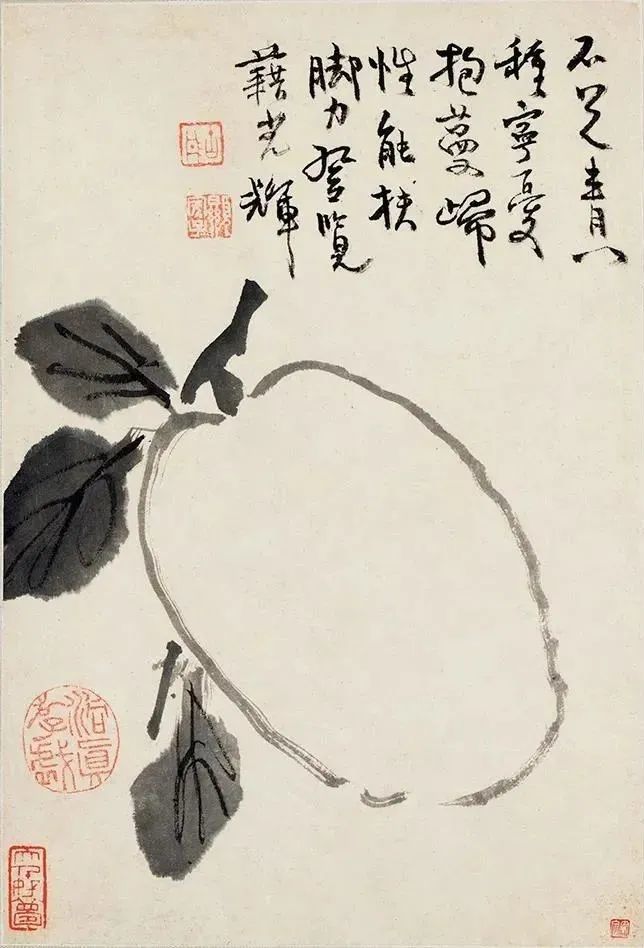 不見青門
種寧憂
抱蔓歸
性能扶
脚力登覽
藉光輝